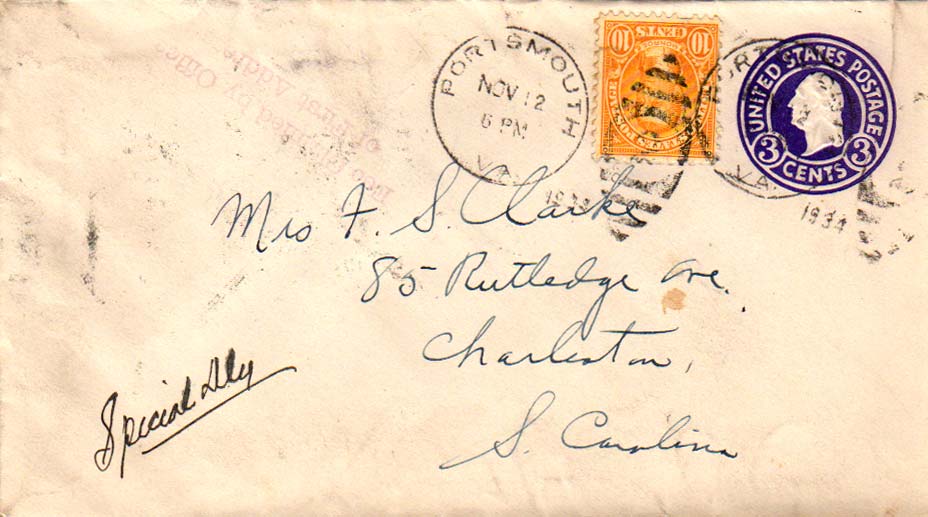 PORTSMOUTH
NOV 12
6 PM
VA.
10 CENTS 10
UNITED STATES POSTAGE
3 CENTS 3
VA.
1934
Mrs F. S. Clarke
85 Rutledge Ave.
Charleston,
S. Carolina
Special Dly